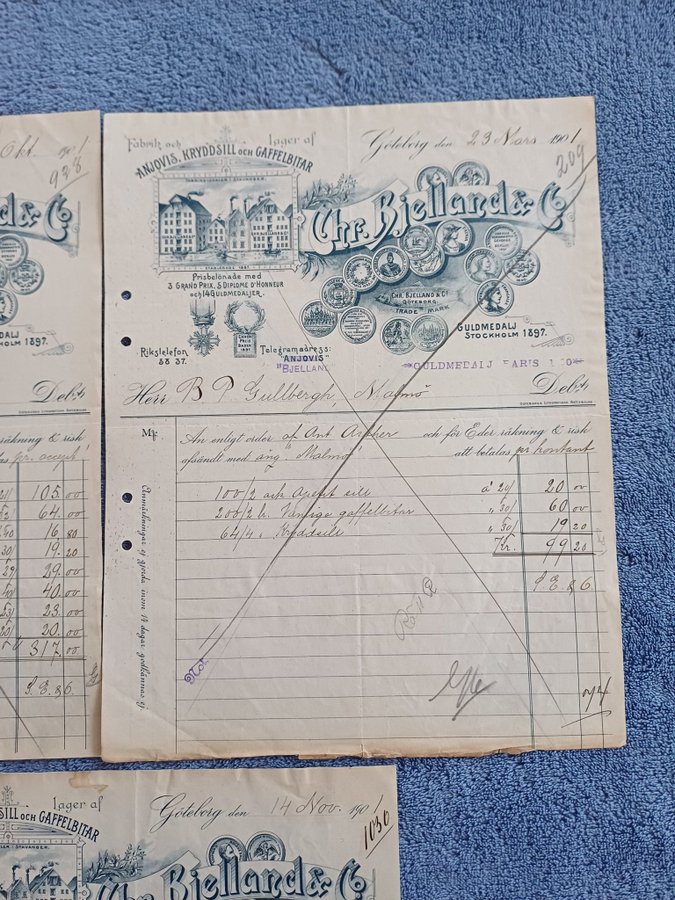 Okt. 190 1
928
and & Co
MEDALJ
HOLM 1897.
Debet
räkning & risk
las pr. accept
105.00
64.00
16.80
19.20
29.00
40.00
23.00
20.00
317.00
S. E. & O.
Fabrik och lager af
ANJOVIS, KRYDDSILL OCH GAFFELBITAR
Göteborg den 23 Mars 190 1
209
Chr. Bjelland & Co
ETABLERADE 1881.
Prisbelönade med
3 GRAND PRIX, 5 DIPLOME D'HONNEUR
och 14 GULDMEDALJER.
CHR. BJELLAND & Co
GÖTEBORG
TRADE MARK
GULDMEDALJ
STOCKHOLM 1897.
Rikstelefon
58 37.
Telegramadress:
"ANJOVIS"
"BJELLAND
GULDMEDALJ PARIS 1900
Herr B P Gullbergh, Malmö Debet
An enligt order af Ant och för Eder räkning & risk
afsändt med ång. "Malmö" att betalas pr kontant
100/2 ask sill à 20/ 20 00
200/2 b. gaffelbitar " 30/ 60 00
64/4 " Kryddsill " 30/ 19 20
Kr. 99 20
S. E. & O.
Anmärkningar ej gjorda inom 14 dagar godkännas ej.
lager af
SILL OCH GAFFELBITAR
Göteborg den 14 Nov. 190 1
1030
STAVANGER.
Chr. Bjelland & Co